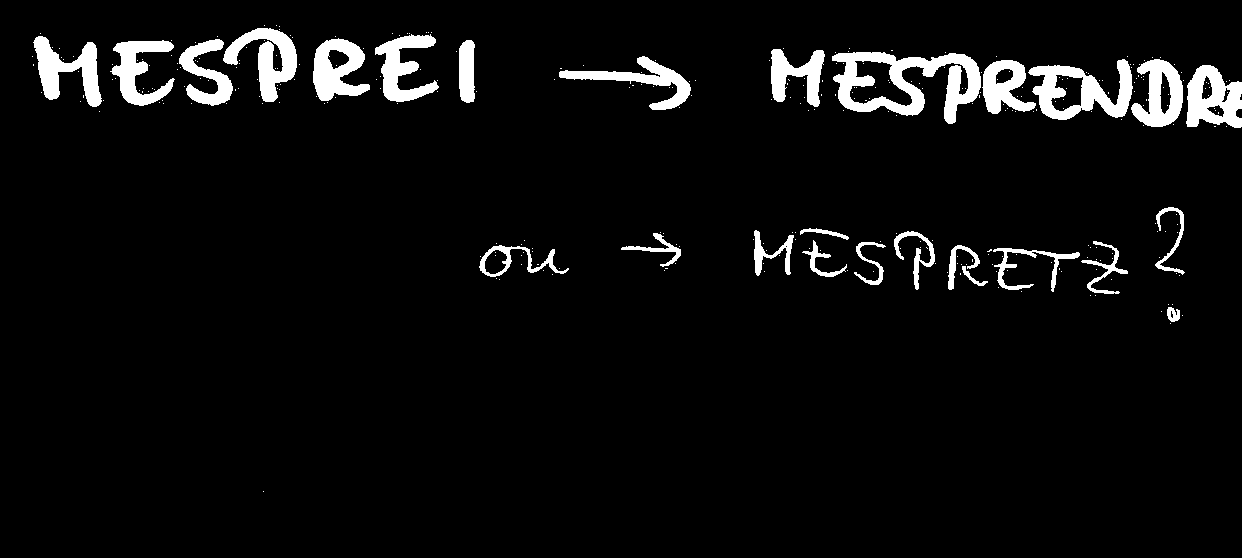 MESPREI → MESPRENDRE
ou → MESPRETZ ?